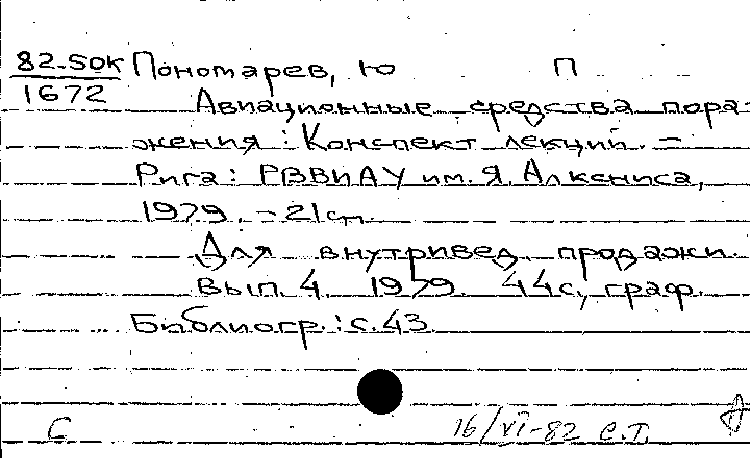 82-5ОК Пономарев, Ю П
1672
Авиационные средства пора-
жения: Конспект лекций. –
Рига: РВВИАУ им. Я. Алксниса,
1979. – 21 см.
Для внутривед. продажи.
Вып. 4 1979. 44 с., граф.
Библиогр.: с. 43.
С 16/VI-82 С.Т.